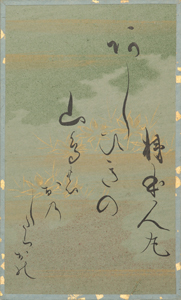 柿本人丸
あしひきの
山鳥の
おの
したりおの